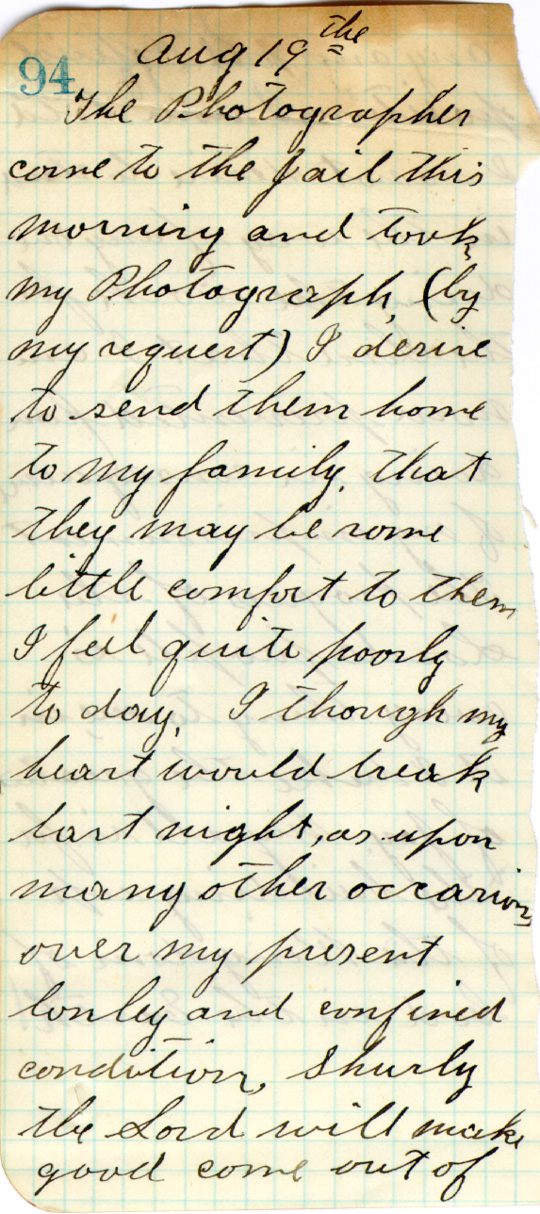 94
Aug 19the
The Photographer
come to the Jail this
morning and took
my Photograph, (by
my request) I desire
to send them home
to my family, that
they may be some
little comfort to them
I feel quite poorly
to day, I though my
heart would break
last night, as upon
many other occasions
over my present
lonley and confined
condition, Shurly
the Lord will make
good come out of